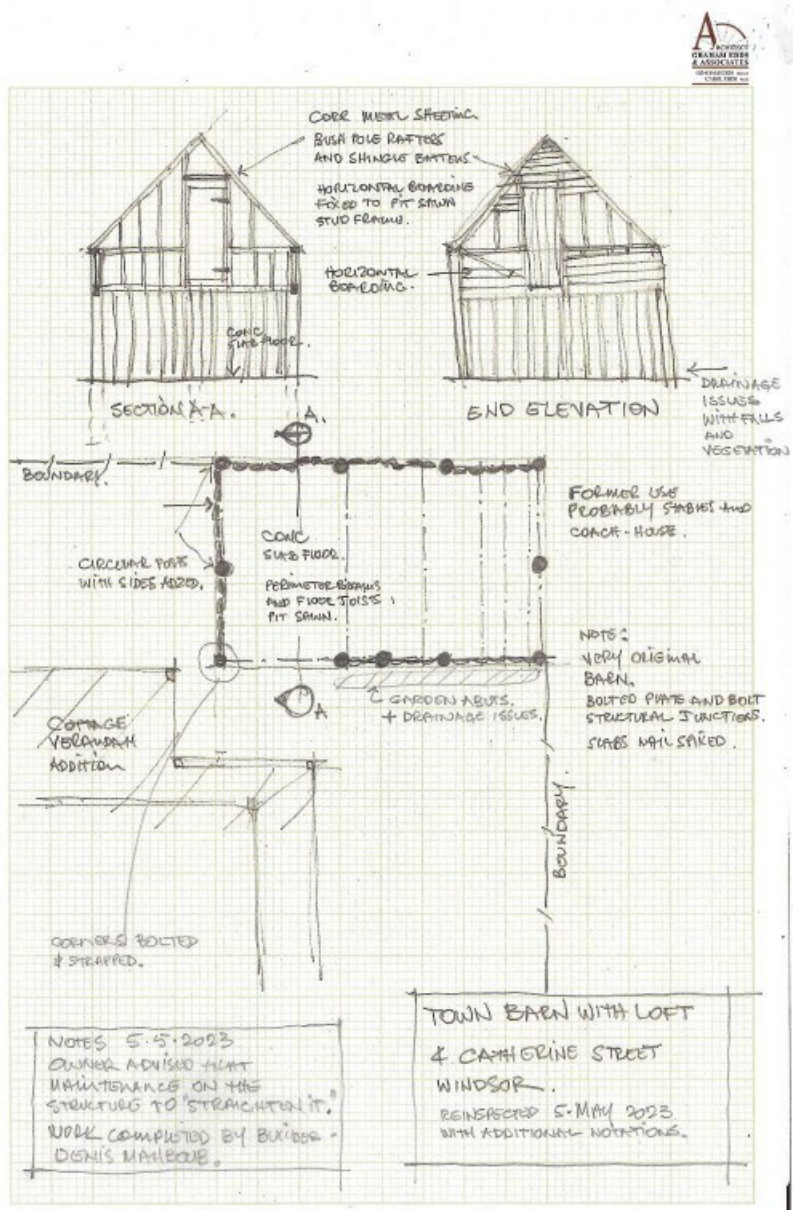 ARCHITECT
GRAHAM EDDS
& ASSOCIATES
CORR METAL SHEETING.
BUSH POLE RAFTERS
AND SHINGLE BATTENS.
HORIZONTAL BOARDING
FIXED TO PIT SAWN
STUD FRAME.
HORIZONTAL
BOARDING.
CONC
SLAB FLOOR.
SECTION A-A.
END ELEVATION
DRAINAGE
ISSUES
WITH FALLS
AND
VEGETATION
A.
BOUNDARY.
CONC
SLAB FLOOR.
PERIMETER BEAMS
AND FLOOR JOISTS
PIT SAWN.
CIRCULAR POSTS
WITH SIDES ADZED.
FORMER USE
PROBABLY STABLES AND
COACH-HOUSE.
NOTE:
VERY ORIGINAL
BARN.
BOLTED PLATE AND BOLT
STRUCTURAL JUNCTIONS.
SLABS NAIL SPIKED.
A
GARDEN ABUTS.
+ DRAINAGE ISSUES.
COTTAGE
VERANDAH
ADDITION
BOUNDARY.
CORNERS BOLTED
& STRAPPED.
NOTES 5.5.2023
OWNER ADVISED THAT
MAINTENANCE ON THE
STRUCTURE TO "STRAIGHTEN IT."
WORK COMPLETED BY BUILDER -
DENIS MAHBOUB.
TOWN BARN WITH LOFT
4 CATHERINE STREET
WINDSOR.
REINSPECTED 5 MAY 2023
WITH ADDITIONAL NOTATIONS.